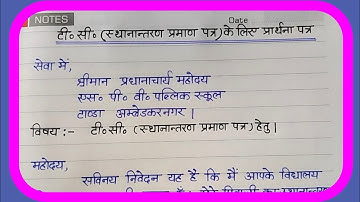 NOTES
Date
टी० सी० (स्थानान्तरण प्रमाण पत्र) के लिए प्रार्थना पत्र
सेवा में,
श्रीमान प्रधानाचार्य महोदय
एस० पी० वी० पब्लिक स्कूल
टाण्डा अम्बेडकरनगर |
विषय :- टी० सी० (स्थानान्तरण प्रमाण पत्र) हेतु |
महोदय,
सविनय निवेदन यह है कि मैं आपके विद्यालय